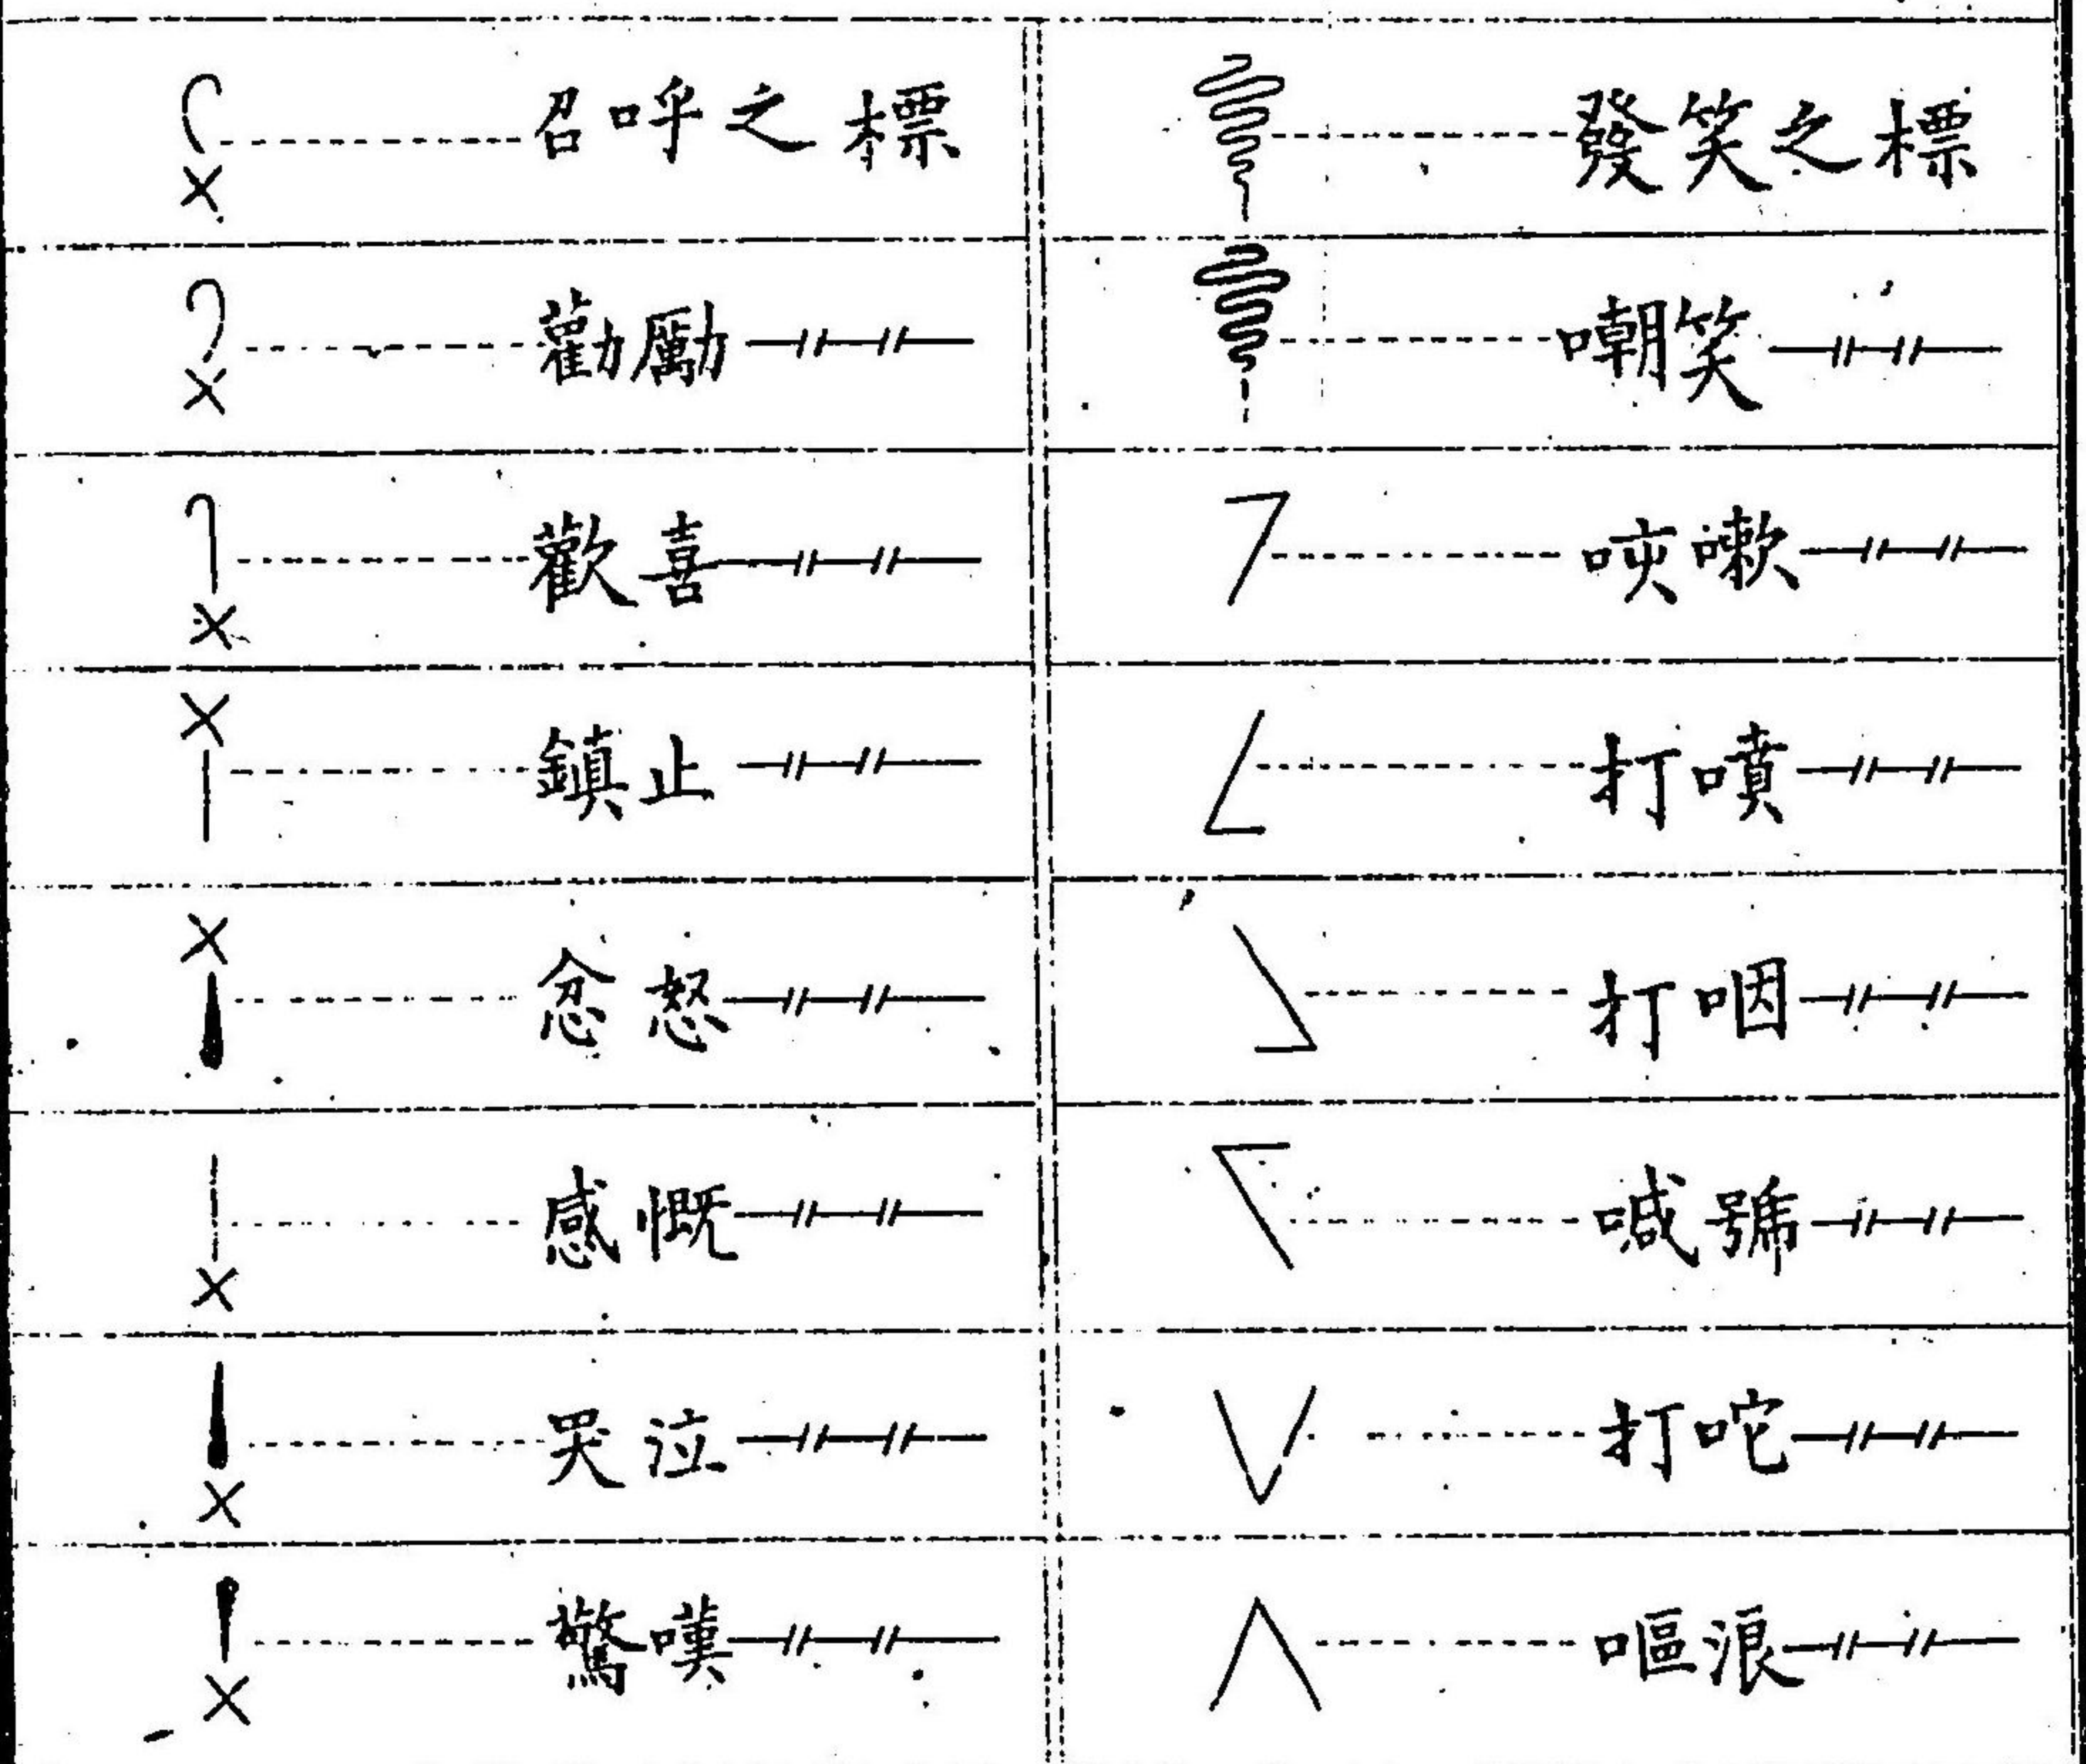 召呼之標
勸勵 —〃—〃—
歡喜 —〃—〃—
鎮止 —〃—〃—
忿怒 —〃—〃—
感慨 —〃—〃—
哭泣 —〃—〃—
驚嘆 —〃—〃—
發笑之標
嘲笑 —〃—〃—
唊嗽 —〃—〃—
打噴 —〃—〃—
打咽 —〃—〃—
喊號 —〃—〃—
打咜 —〃—〃—
嘔浪 —〃—〃—